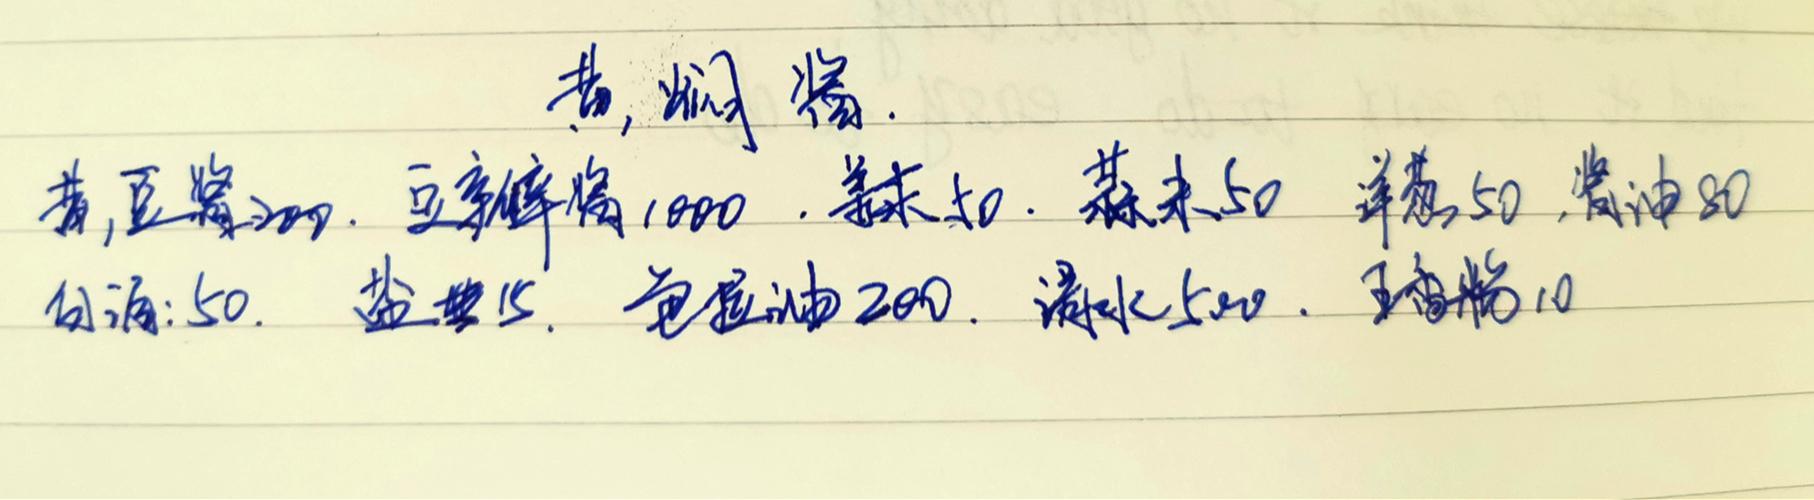 黄焖酱.
黄豆酱200. 豆瓣酱1000. 姜末50. 蒜末50 洋葱50. 酱油80
白酒:50. 盐15. 色拉油200. 清水500. 五香粉10